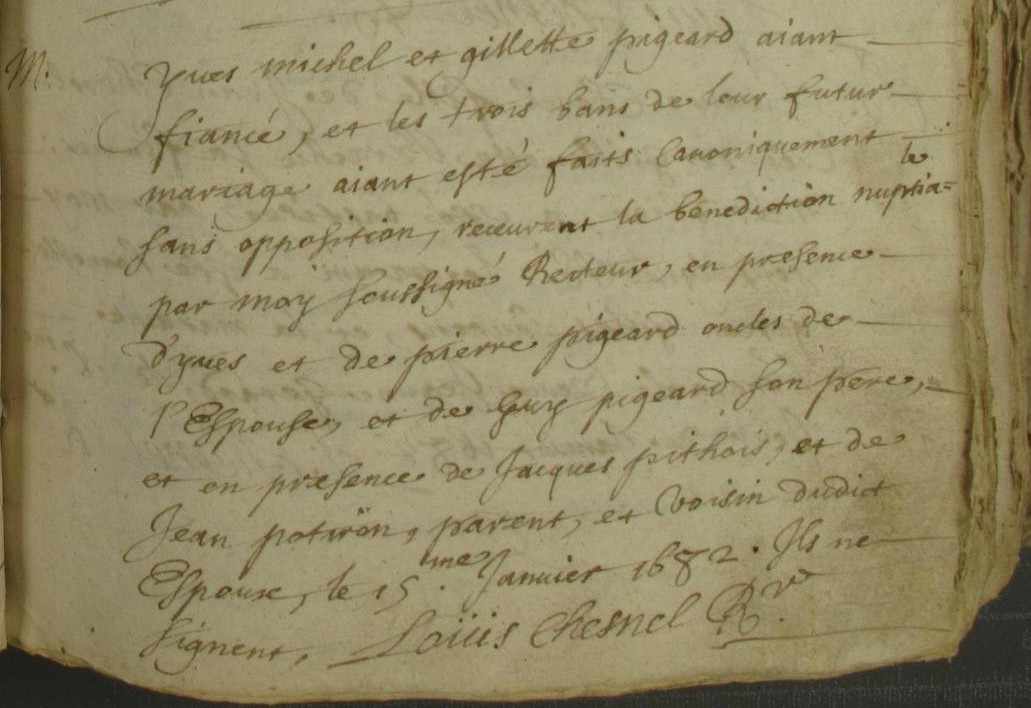 M. yves michel et gillette pigeard aiant
fiancé, et les trois bans de leur futur
mariage aiant esté faits Canoniquement
sans opposition, receurent la benediction nuptia=le
par moy soussigné Recteur, en presence
d'yves et de pierre pigeard oncles de
l'Espouse, et de Guy pigeard son pere,
et en presence de Jacques pithois, et de
Jean potiron, parent, et Voisin dudict
Espoux, le 15.me Januier 1682. Ils ne
signent, Loüis Chesnel Rr.